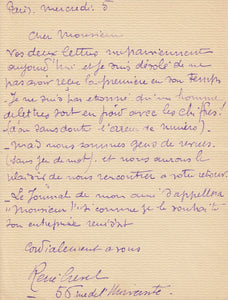 Paris, mercredi 5
Cher Monsieur
Vos deux lettres me parviennent
aujourd'hui et je suis désolé de ne
pas avoir reçu la première en son temps
Je ne suis pas étonné qu'un homme
de lettres soit en froid avec les chiffres!
(d'où sans doute l'erreur de numéro)
- mais nous sommes gens de revues
(sans jeu de mot), et nous aurons le
plaisir de nous rencontrer à votre retour.
- Le Journal de mon ami s'appellera
"Monsieur"! si comme je le souhaite
son entreprise réussit
Cordialement à vous
René
56 rue de